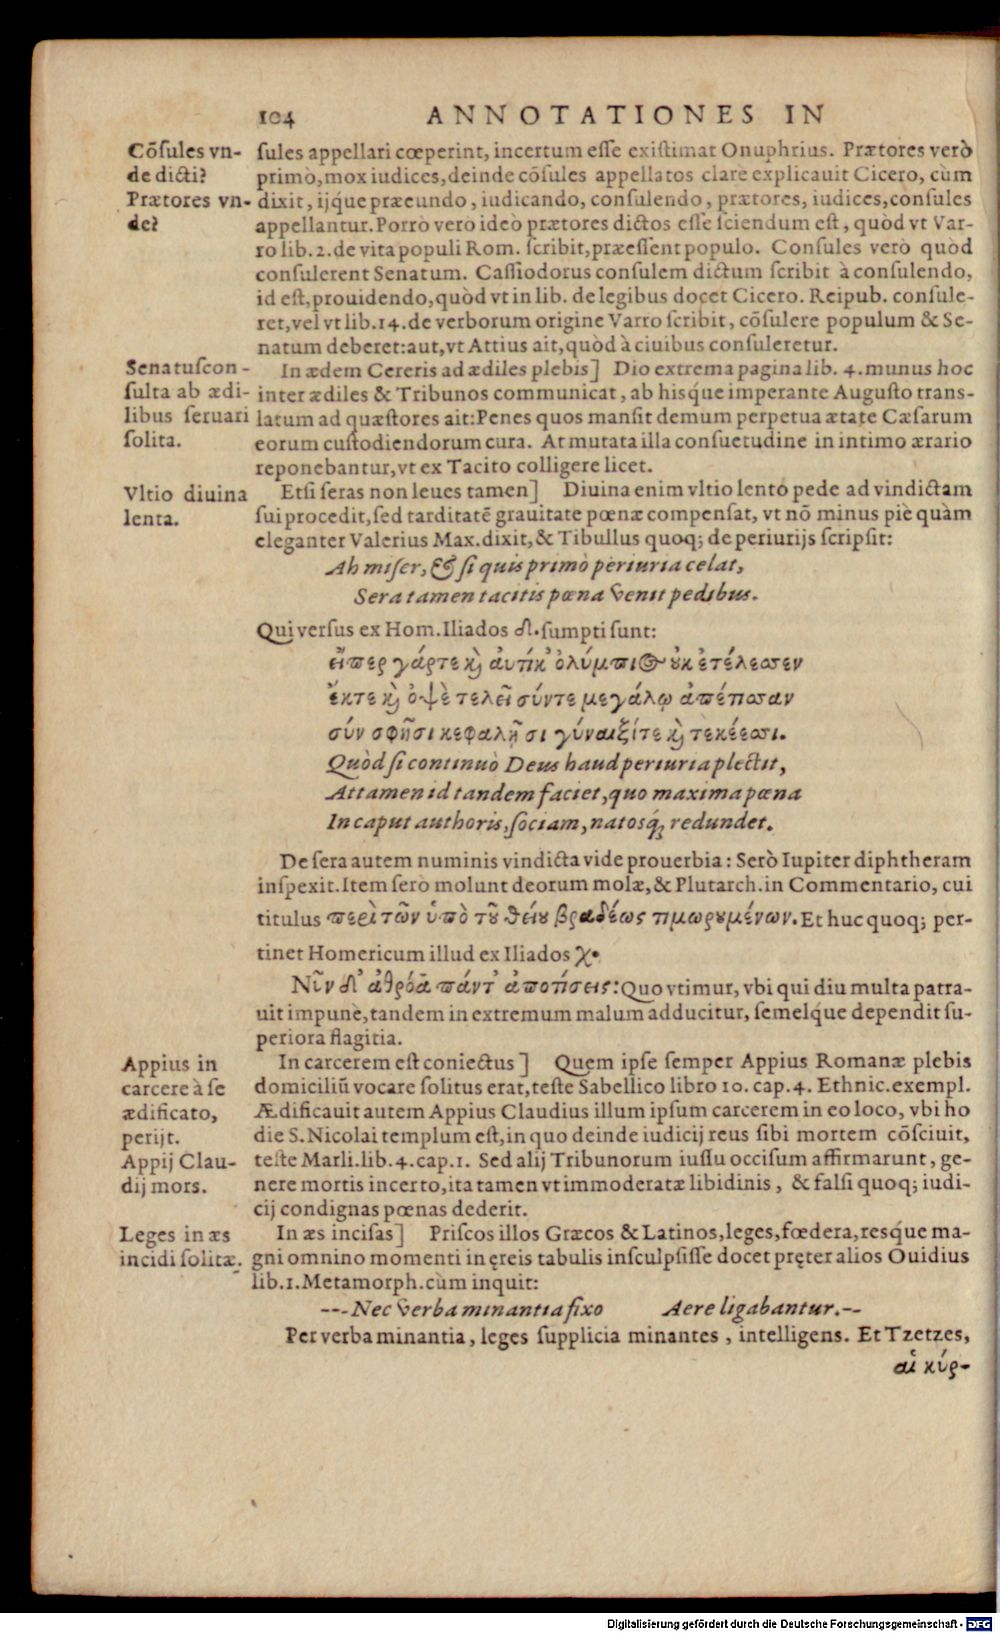 104 ANNOTATIONES IN
Cõsules vn-
de dicti?
Prætores vn-
de?
sules appellari cœperint, incertum esse existimat Onuphrius. Prætores verò
primò, mox iudices, deinde cõsules appellatos clarè explicauit Cicero, cùm
dixit, ijq́ue præeundo, iudicando, consulendo, prætores, iudices, consules
appellantur. Porrò verò ideò prætores dictos esse sciendum est, quòd vt Var-
ro lib. 2. de vita populi Rom. scribit, præessent populo. Consules verò quòd
consulerent Senatum. Cassiodorus consulem dictum scribit à consulendo,
id est, prouidendo, quòd vt in lib. de legibus docet Cicero. Reipub. consule-
ret, vel vt lib. 14. de verborum origine Varro scribit, cõsulere populum & Se-
natum deberet: aut, vt Attius ait, quòd à ciuibus consuleretur.
Senatuscon-
sulta ab ædi-
libus seruari
solita.
In ædem Cereris ad ædiles plebis] Dio extrema pagina lib. 4. munus hoc
inter ædiles & Tribunos communicat, ab hisq́ue imperante Augusto trans-
latum ad quæstores ait: Penes quos mansit demum perpetua ætate Cæsarum
eorum custodiendorum cura. At mutata illa consuetudine in intimo ærario
reponebantur, vt ex Tacito colligere licet.
Vltio diuina
lenta.
Etsi seras non leues tamen] Diuina enim vltio lento pede ad vindictam
sui procedit, sed tarditatẽ grauitate pœnæ compensat, vt nõ minus piè quàm
eleganter Valerius Max. dixit, & Tibullus quoq; de periurijs scripsit:
Ah miser, & si quis primò periuria celat,
Sera tamen tacitis pœna venit pedibus.
Qui versus ex Hom. Iliados δ. sumpti sunt:
εἴπερ γάρτε καὶ αὐτίκ' ὀλύμπιος οὐκ ἐτέλεσσεν
ἔκτε καὶ ὀψὲ τελεῖ σύντε μεγάλῳ ἀπέτισαν
σύν σφῇσι κεφαλῇσι γύναιξίτε καὶ τεκέεσσι.
Quòd si continuò Deus haud periuria plectit,
Attamen id tandem faciet, quo maxima pœna
In caput authoris, sociam, natosq́; redundet.
De sera autem numinis vindicta vide prouerbia: Serò Iupiter diphtheram
inspexit. Item serò molunt deorum molæ, & Plutarch. in Commentario, cui
titulus περὶ τῶν ὑπὸ τοῦ θείου βραδέως τιμωρουμένων. Et huc quoq; per-
tinet Homericum illud ex Iliados χ.
Νῦν δ' ἀθρόα πάντ' ἀποτίσεις: Quo vtimur, vbi qui diu multa patra-
uit impunè, tandem in extremum malum adducitur, semelq́ue dependit su-
periora flagitia.
Appius in
carcere à se
ædificato,
perijt.
Appij Clau-
dij mors.
In carcerem est coniectus] Quem ipse semper Appius Romanæ plebis
domiciliũ vocare solitus erat, teste Sabellico libro 10. cap. 4. Ethnic. exempl.
Ædificauit autem Appius Claudius illum ipsum carcerem in eo loco, vbi ho
die S. Nicolai templum est, in quo deinde iudicij reus sibi mortem cõsciuit,
teste Marli. lib. 4. cap. 1. Sed alij Tribunorum iussu occisum affirmarunt, ge-
nere mortis incerto, ita tamen vt immoderatæ libidinis, & falsi quoq; iudi-
cij condignas pœnas dederit.
Leges in æs
incidi solitæ.
In æs incisas] Priscos illos Græcos & Latinos, leges, fœdera, resq́ue ma-
gni omnino momenti in ęreis tabulis insculpsisse docet pręter alios Ouidius
lib. 1. Metamorph. cùm inquit:
--- Nec verba minantia fixo Aere ligabantur. --
Per verba minantia, leges supplicia minantes, intelligens. Et Tzetzes,
αἱ κύρ-
Digitalisierung gefördert durch die Deutsche Forschungsgemeinschaft - DFG